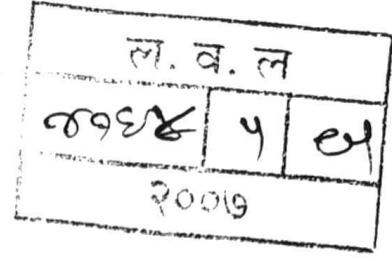 ल. व. ल
७१६४ ५
२००७